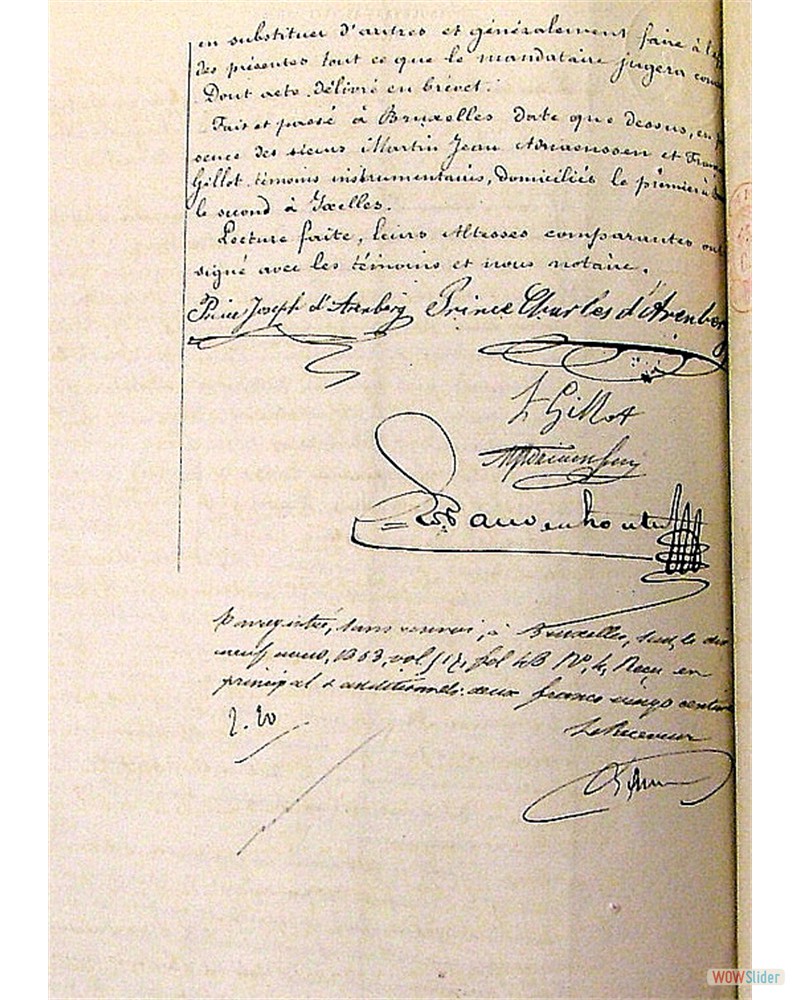 en substituer d'autres et généralement faire à l'
des présentes tout ce que le mandataire jugera
Dont acte délivré en brevet.
Fait et passé à Bruxelles date que dessus, en
sence des sieurs Martin Jean et
Gillot témoins instrumentaires, domiciliés le premier à
le second à Ixelles.
Lecture faite, leurs Altesses comparantes ont
signé avec les témoins et nous notaire.
Prince Joseph d'Arenberg Prince Charles d'Arenberg
Gillot
à Bruxelles, sud, le
1863, vol fol Reçu en
principal & additionnels deux francs vingt
2.20
Le Receveur
WOWSlider